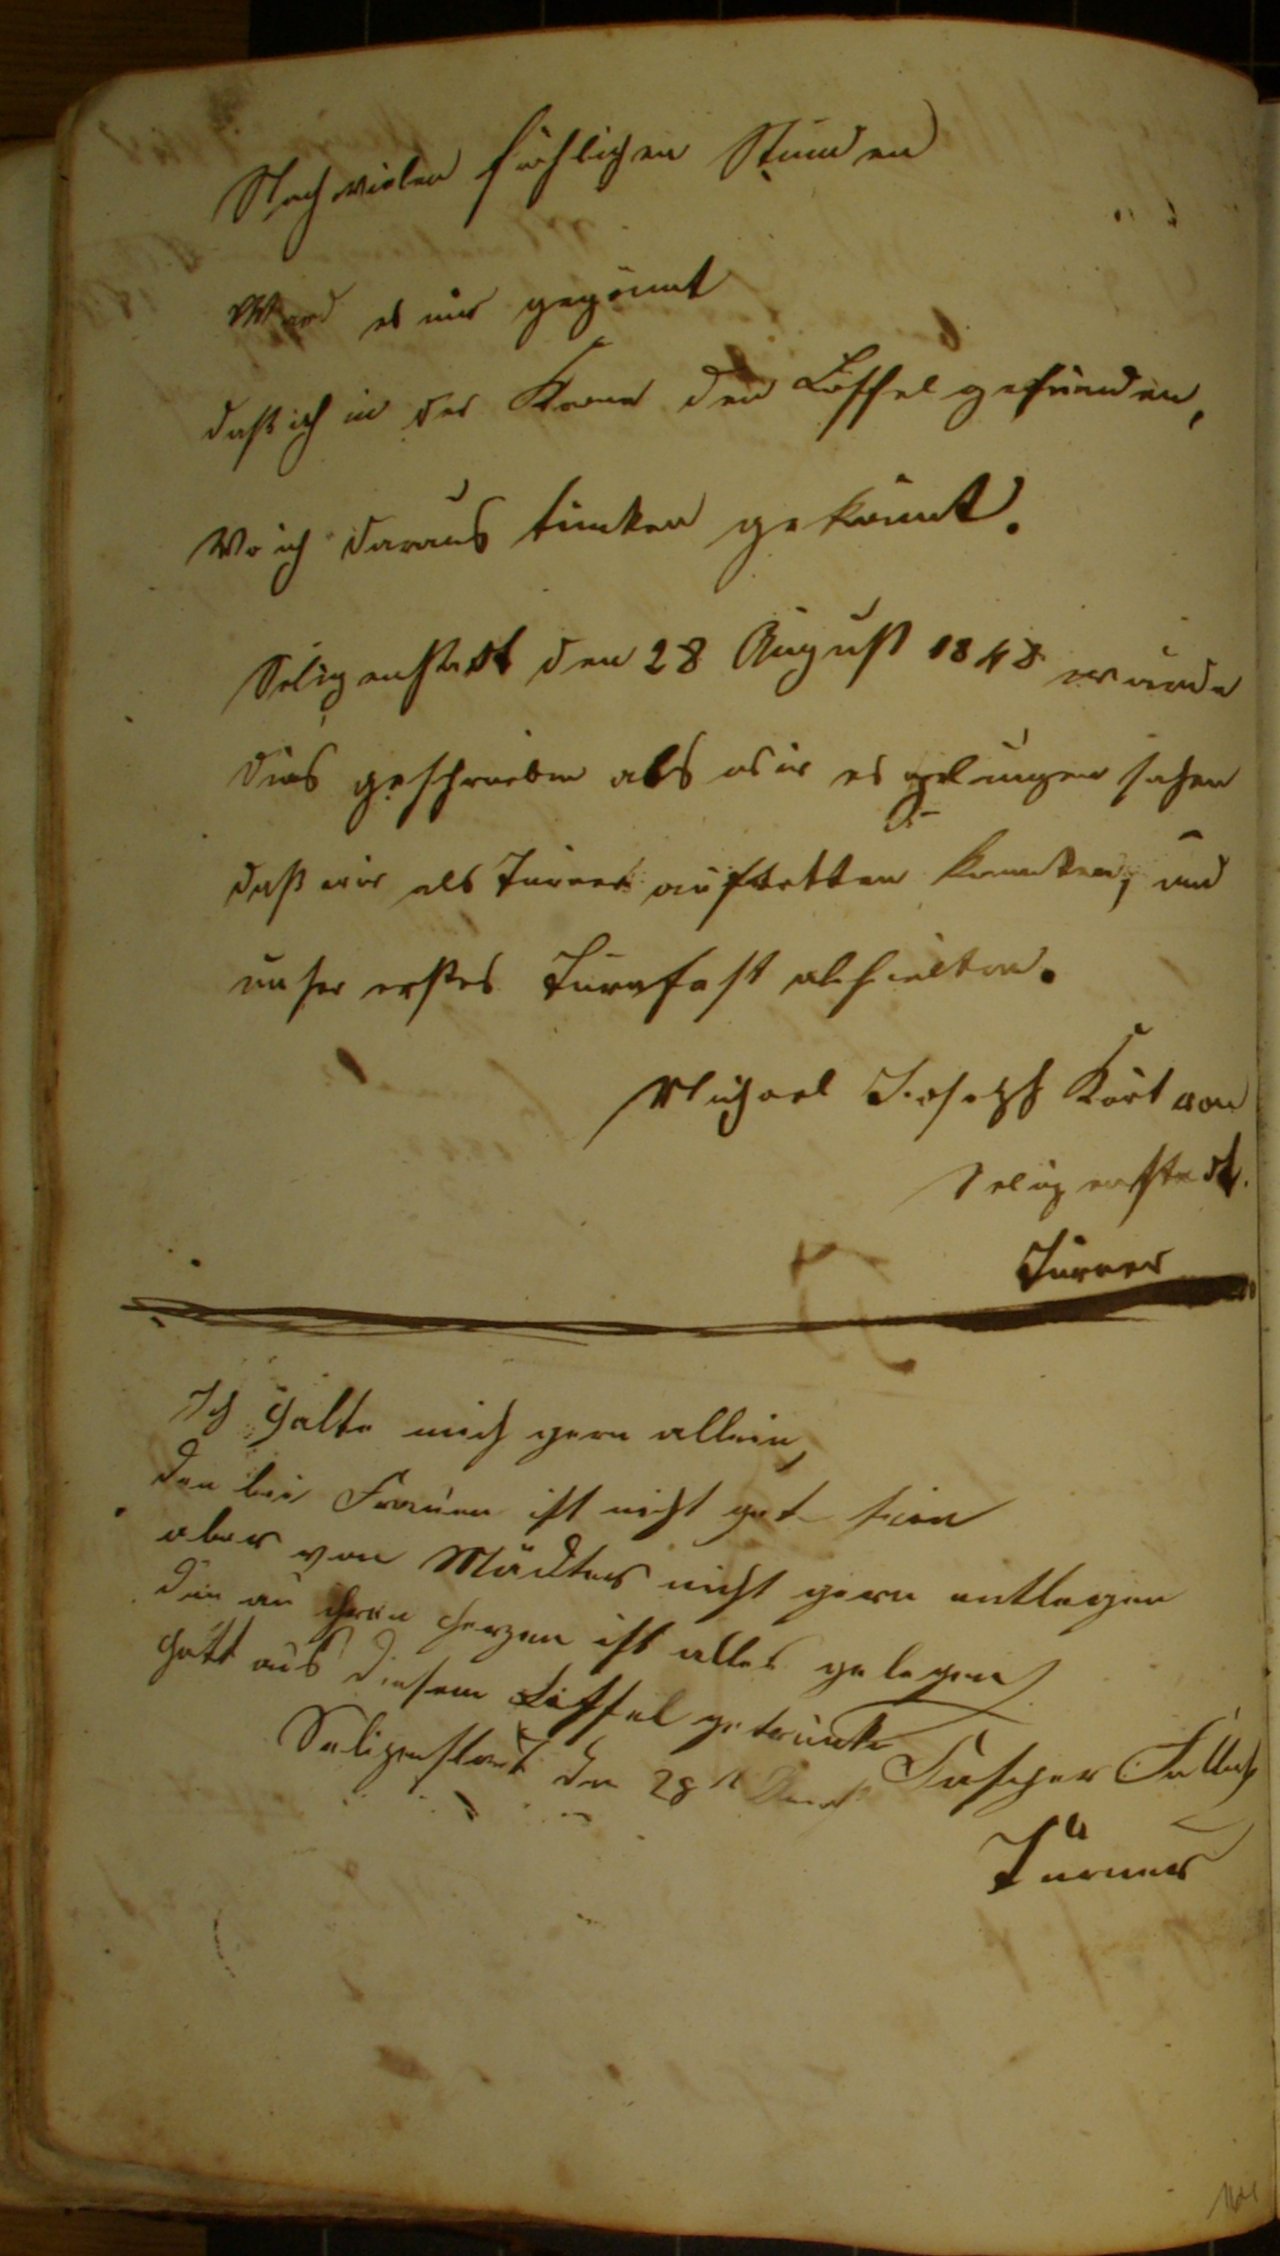 Nach vielen fröhligen Stunden
Ward es mir gegönnt
daß ich in der Krone den Löffel gefunden,
Wo ich daraus trinken gekönnt.
Seligenstadt den 28 August 1848 wurde
dies geschrieben als wir es gelungen sahen
daß wir als Turner auftretten konnten, und
unser erstes Turnfest abhielten.
Michael Joseph Kört von
Seligenstadt.
Turner
Ich halte mich gern allein,
den bei Frauen ist nicht gut sein
aber von Mädters nicht gern entlegen
den an ihren Herzen ist alles gelegen
Hatt aus diesem Löffel getrunke
Seligenstadt den 28
Turner